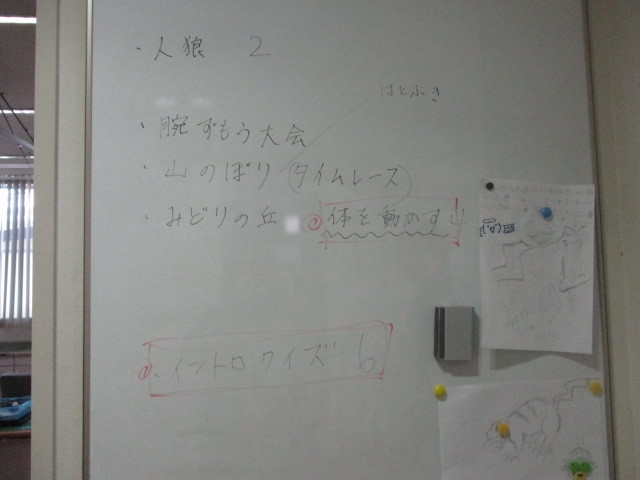 ・人狼 2
はとぶき
・腕ずもう大会
・山のぼり(タイムレース)
・みどりの丘 ② 体を動かす 4
①.イントロクイズ 6